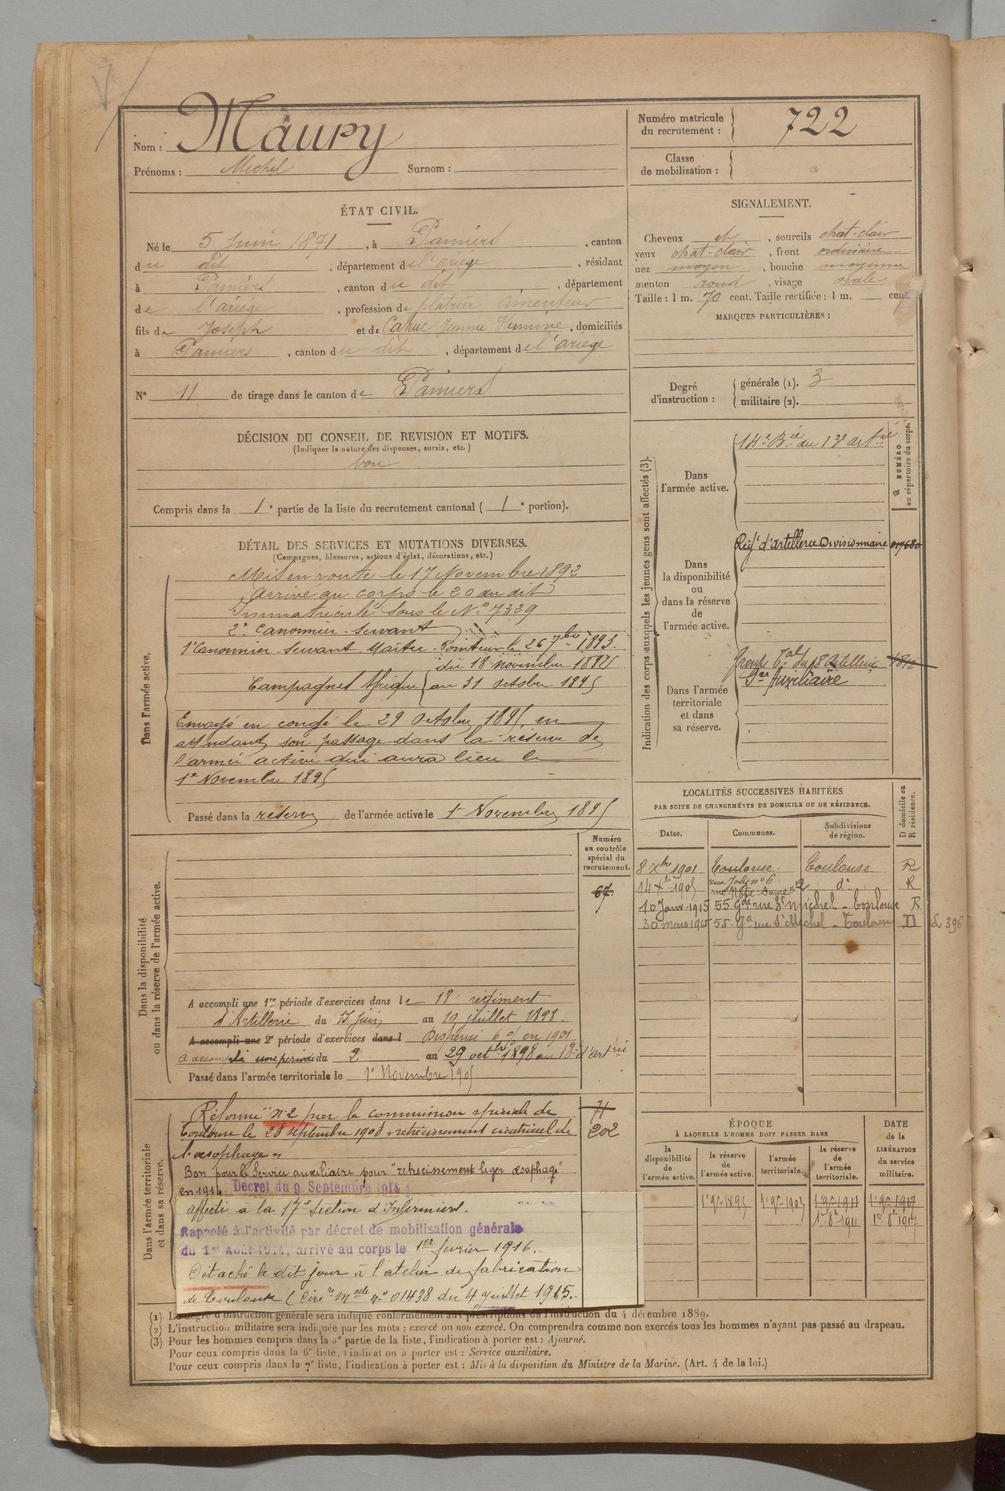 Nom : Maury
Prénoms : Michel Surnom :
Numéro matricule du recrutement : 722
Classe de mobilisation :
ÉTAT CIVIL.
Né le 5 Juin 1871, à Pamiers, canton
du dit, département de l'ariège, résidant
à Pamiers, canton du dit, département
de l'ariège, profession de platrier
fils de Joseph et de Cahuc Jeanne Hermine, domiciliés
à Pamiers, canton du dit, département de l'ariège
N° 11 de tirage dans le canton de Pamiers
SIGNALEMENT.
Cheveux et, sourcils chat-clair
yeux chat-clair, front ordinaire
nez moyen, bouche moyenne
menton rond, visage ovale
Taille : 1 m. 70 cent. Taille rectifiée : 1 m. cent.
MARQUES PARTICULIÈRES :
Degré d'instruction : générale (1). 3
militaire (2).
DÉCISION DU CONSEIL DE REVISION ET MOTIFS.
(Indiquer la nature des dispenses, sursis, etc.)
bon
Compris dans la 1e partie de la liste du recrutement cantonal (1e portion).
DÉTAIL DES SERVICES ET MUTATIONS DIVERSES.
(Campagnes, blessures, actions d'éclat, décorations, etc.)
Dans l'armée active.
Mis en route le 17 Novembre 1892
Arrivé au corps le 20 du dit
Immatriculé sous le N° 7339
2e Canonnier servant
1er Canonnier servant Maître Pointeur le 26 7bre 1893.
Campagnes Afrique { du 18 novembre 1892
au 31 octobre 1895
Envoyé en congé le 29 Octobre 1895, en
attendant son passage dans la réserve de
l'armée active qui aura lieu le
1er Novembre 1895
Passé dans la réserve de l'armée active le 1 Novembre 1895
Indication des corps auxquels les jeunes gens sont affectés (3).
NUMÉRO au répertoire du corps.
Dans l'armée active.
14e Bie du 13e artrie
Dans la disponibilité ou dans la réserve de l'armée active.
Régt d'artillerie Divisionnaire
Dans l'armée territoriale et dans sa réserve.
Groupe tal du 18 Artillerie
Sce Auxiliaire
LOCALITÉS SUCCESSIVES HABITÉES
PAR SUITE DE CHANGEMENTS DE DOMICILE OU DE RÉSIDENCE.
Dates. Communes. Subdivisions de région. D domicile ou R résidence.
8 Xbre 1901 Toulouse Toulouse R
14 Xbre 1905 d° R
10 Janv 1915 55 Gde rue St Michel - Toulouse R
30 mars 1915 55 Gde rue St Michel - Toulouse D
Dans la disponibilité ou dans la réserve de l'armée active.
Numéro au contrôle spécial du recrutement.
67
A accompli une 1re période d'exercices dans le 18e régiment
d'Artillerie du au 10 juillet 1898.
A accompli une 2e période d'exercices dans l Dispensé en 1901
a accompli une période du 2 au 29 octbre 1898 au 18e d'artrie
Passé dans l'armée territoriale le 1er Novembre 1905
Dans l'armée territoriale et dans sa réserve.
71
202
Réformé n° 2 par la commission spéciale de
Toulouse le 28 septembre 1908 "retrécissement cicatriciel de
l'œsophage"
Bon pour le Service auxiliaire pour "retrecissement leger œsophage"
en 1914. Décret du 9 Septembre 1914
affecté à la 17e Section d'Infirmiers.
Rappelé à l'activité par décret de mobilisation générale
du 1er Août 1914, arrivé au corps le 1er fevrier 1916.
Détaché le dit jour à l'atelier de fabrication
de Toulouse (Circre Melle n° 01438 du 4 juillet 1915.
ÉPOQUE
À LAQUELLE L'HOMME DOIT PASSER DANS
la disponibilité de l'armée active. la réserve de l'armée active. l'armée territoriale. la réserve de l'armée territoriale.
DATE de la LIBÉRATION du service militaire.
(1) Le degré d'instruction générale sera indiqué conformément aux prescriptions de l'instruction du 4 décembre 1889.
(2) L'instruction militaire sera indiquée par les mots : exercé ou non exercé. On comprendra comme non exercés tous les hommes n'ayant pas passé au drapeau.
(3) Pour les hommes compris dans la 5e partie de la liste, l'indication à porter est : Ajourné.
Pour ceux compris dans la 6e liste, l'indication à porter est : Service auxiliaire.
Pour ceux compris dans la 7e liste, l'indication à porter est : Mis à la disposition du Ministre de la Marine. (Art. 4 de la loi.)